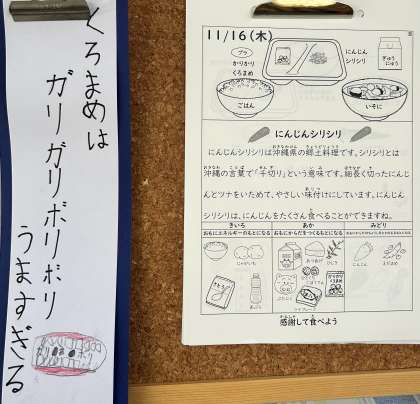 くろまめは
ガリガリボリボリ
うますぎる
11/16(木)
プラ
かりかり
くろまめ
にんじん
シリシリ
ぎゅう
にゅう
ごはん
いそに
にんじんシリシリ
にんじんシリシリは沖縄県の郷土料理です。シリシリとは
沖縄の言葉で「千切り」という意味です。細長く切ったにんじ
んとツナをいためて、やさしい味付けにしています。にんじん
シリシリは、にんじんをたくさん食べることができますね。
きいろ
あか
みどり
おもにエネルギーのもとになる
おもにからだをつくるもとになる
じゃがいも
にんじん
えだまめ
感謝して食べよう